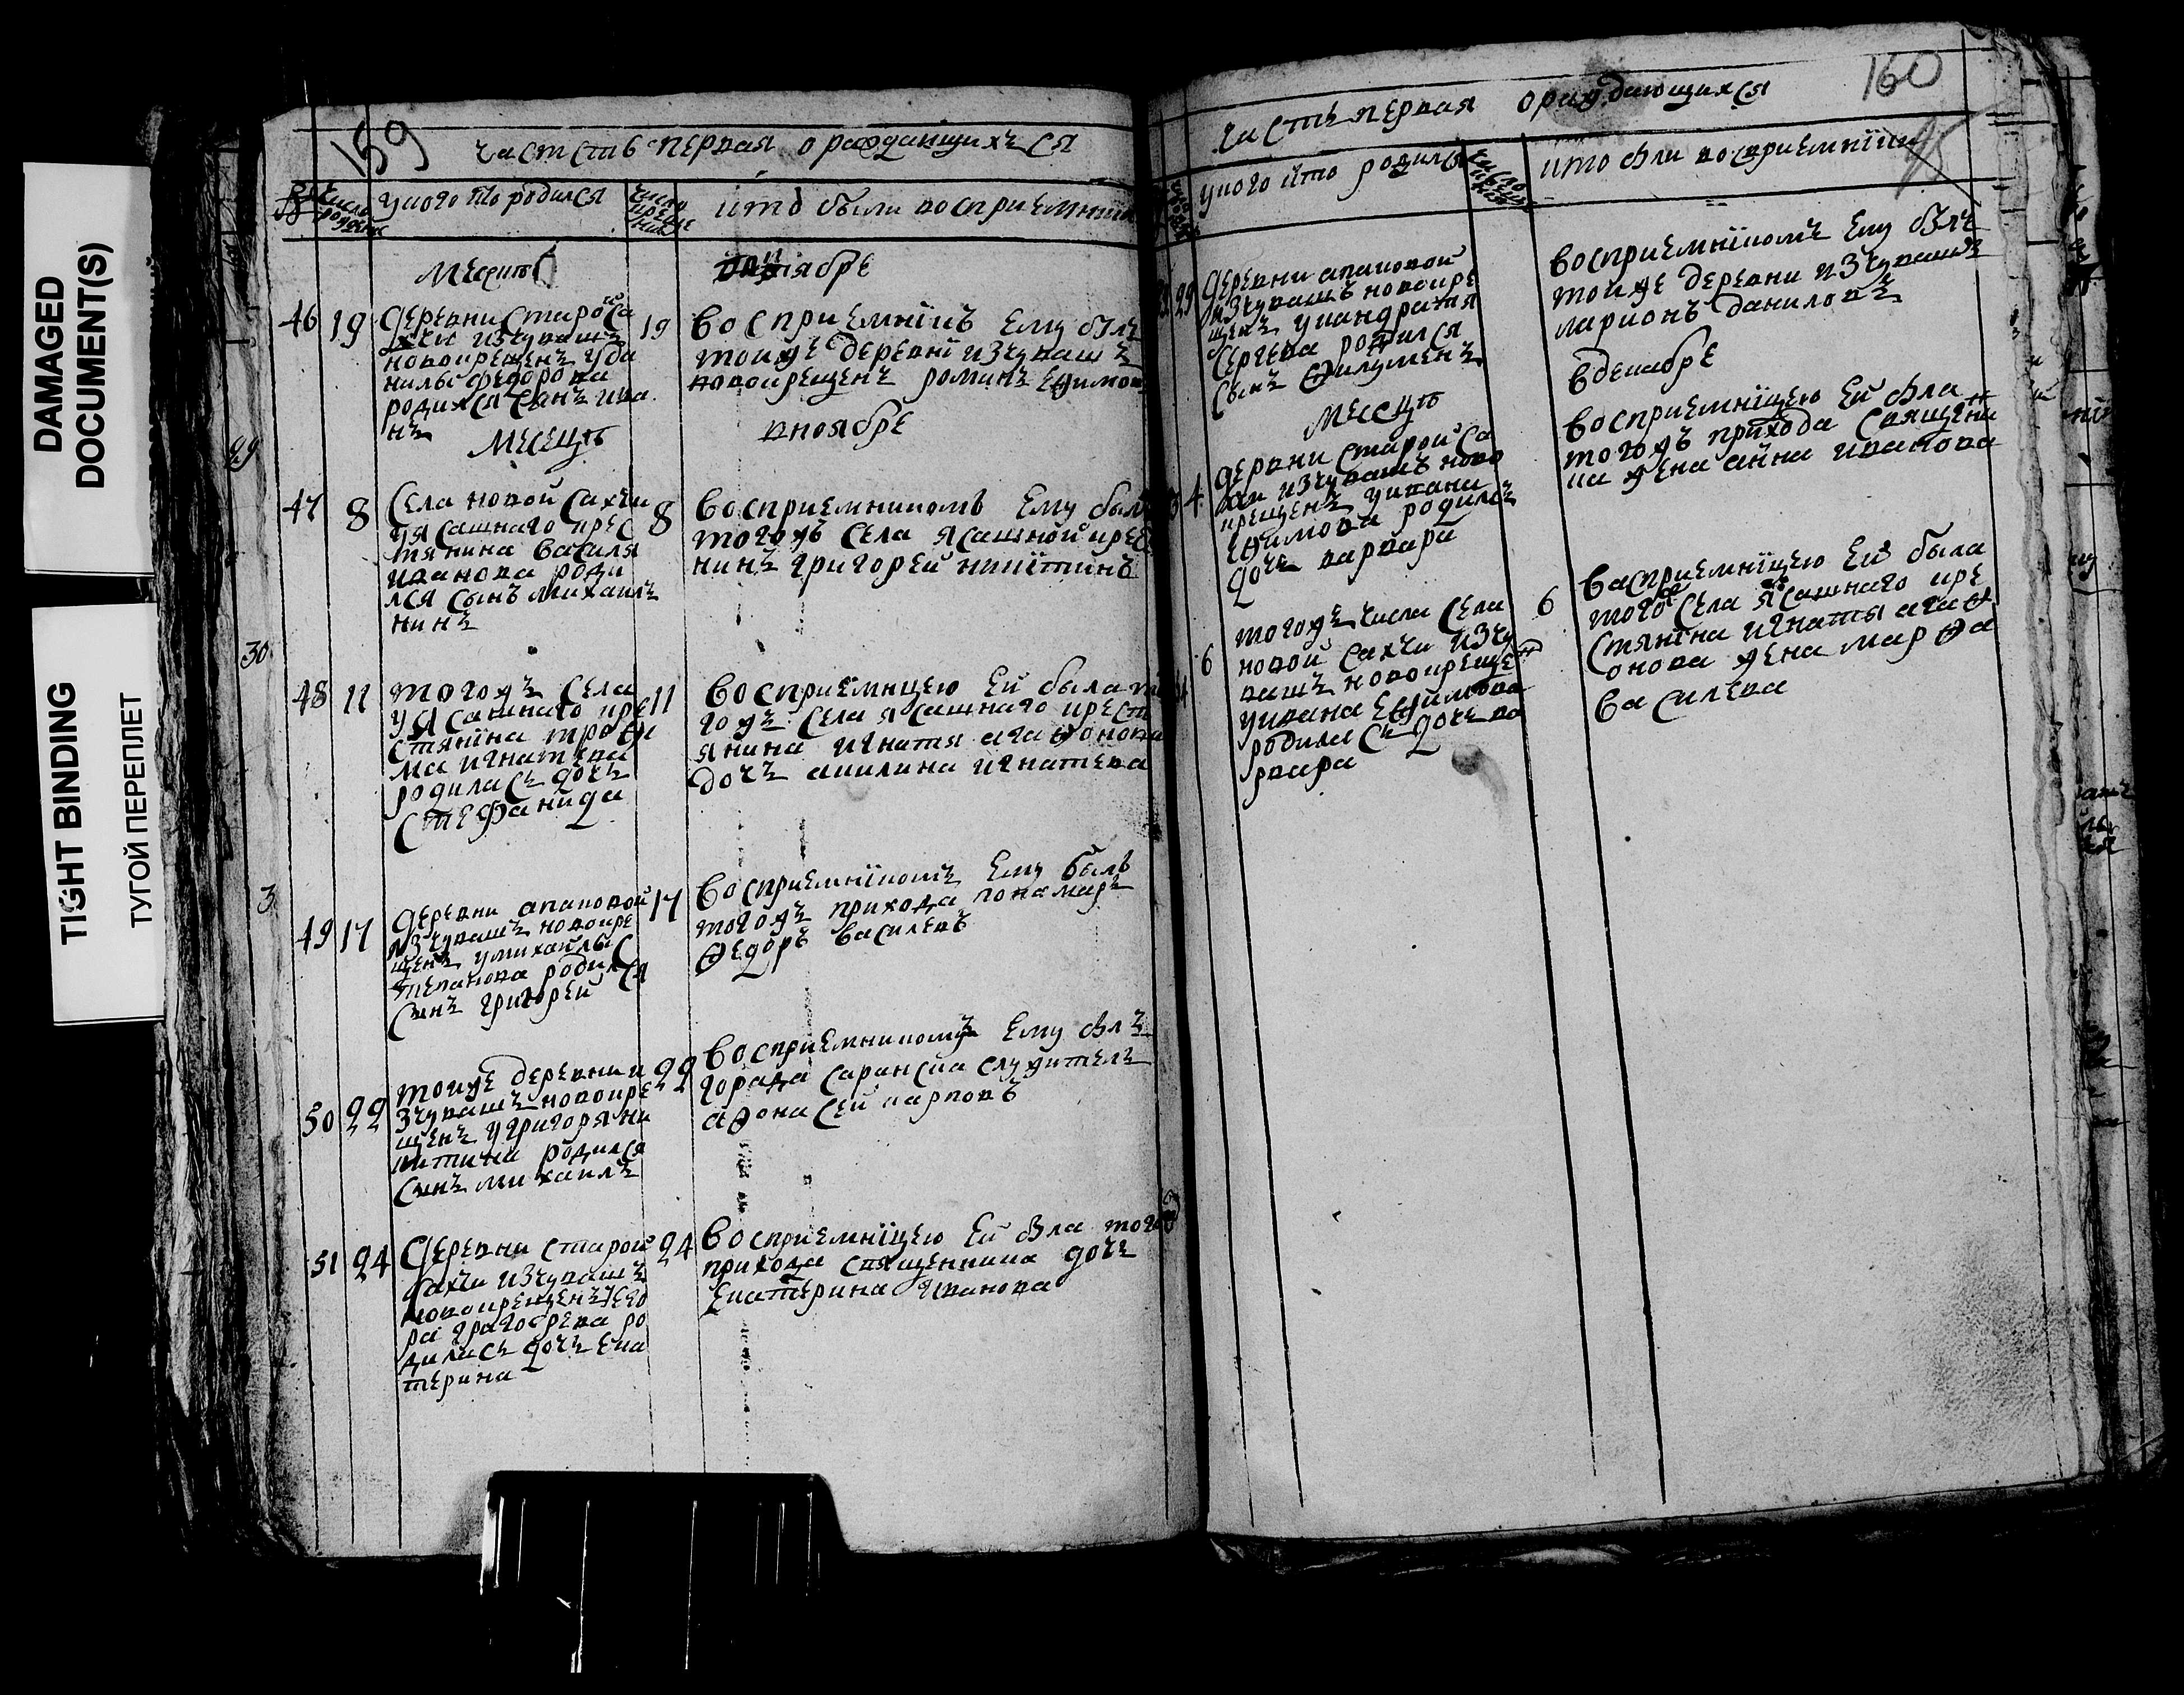 DAMAGED
DOCUMENT(S)
TIGHT BINDING
ТУГОЙ ПЕРЕПЛЕТ
159
частсть первая о раждающихъся
число рожде
у кого кто родился
число креще
кто были восприемники
месецъ
октиабре
46 19 деревни старой са
хчи изчувашъ
новокрещенъ у да
нилы федорова
родился сынъ ива
нъ
19 восприемникъ ему былъ
тойже деревни изчувашъ
новокрещенъ романъ ефимов
месецъ
вноябре
47 8 села новой сахчи
у ясашнаго крес
тянина василя
иванова роди
лся сынъ михаилъ
нинъ
8 восприемникомъ ему был
тогожъ села ясашной крес
нинъ григорей никитинъ
48 11 тогожъ села
у ясашнаго кре
стянина трофи
ма игнатева
родилась дочь
стефанида
11 восприемницею ей была то
гожъ села ясашнаго крест
янина игнатя агаѳонова
дочъ акилина игнатева
49 17 деревни апаковой
изчувашъ новокре
щенъ у михаилы с
тепанова родился
сынъ григорей
17 восприемникомъ ему былъ
тогожъ прихода понамарь
ѳедоръ василевъ
50 22 тойже деревни и
зчувашъ новокре
щенъ у григоря ни
китина родился
сынъ михаилъ
22 восприемникомъ ему былъ
города саранска служитель
аѳонасей карповъ
51 24 деревни старой
сахчи изчувашъ
новокрещенъ
григорева ро
дилась дочь ека
терина
24 восприемницею ей была того
прихода священника дочь
екатерина иванова
160
часть первая о раждающихся
у кого кто родился
кто были восприемники
29 деревни апаковой
изчувашъ новокре
щенъ у кандратя
сергева родился
сынъ филуменъ
восприемникомъ ему былъ
тойже деревни изчувашъ
ларионъ даниловъ
месецъ
вдекабре
4 дервни старой са
хчи изчувашъ ново
крещенъ у ивана
ефимова родилсь
дочь варвара
восприемницею ей была
тогожъ прихода священи
ка жена анна иванова
6 тогоже числа села
новой сахчи изчу
вашъ новокрещен
у ивана ефимова
родилась дочь ва
рвара
6 васприемницею ей была
тогож села ясашнаго кре
стянина игнатя агаѳ
онова жена марѳа
василева